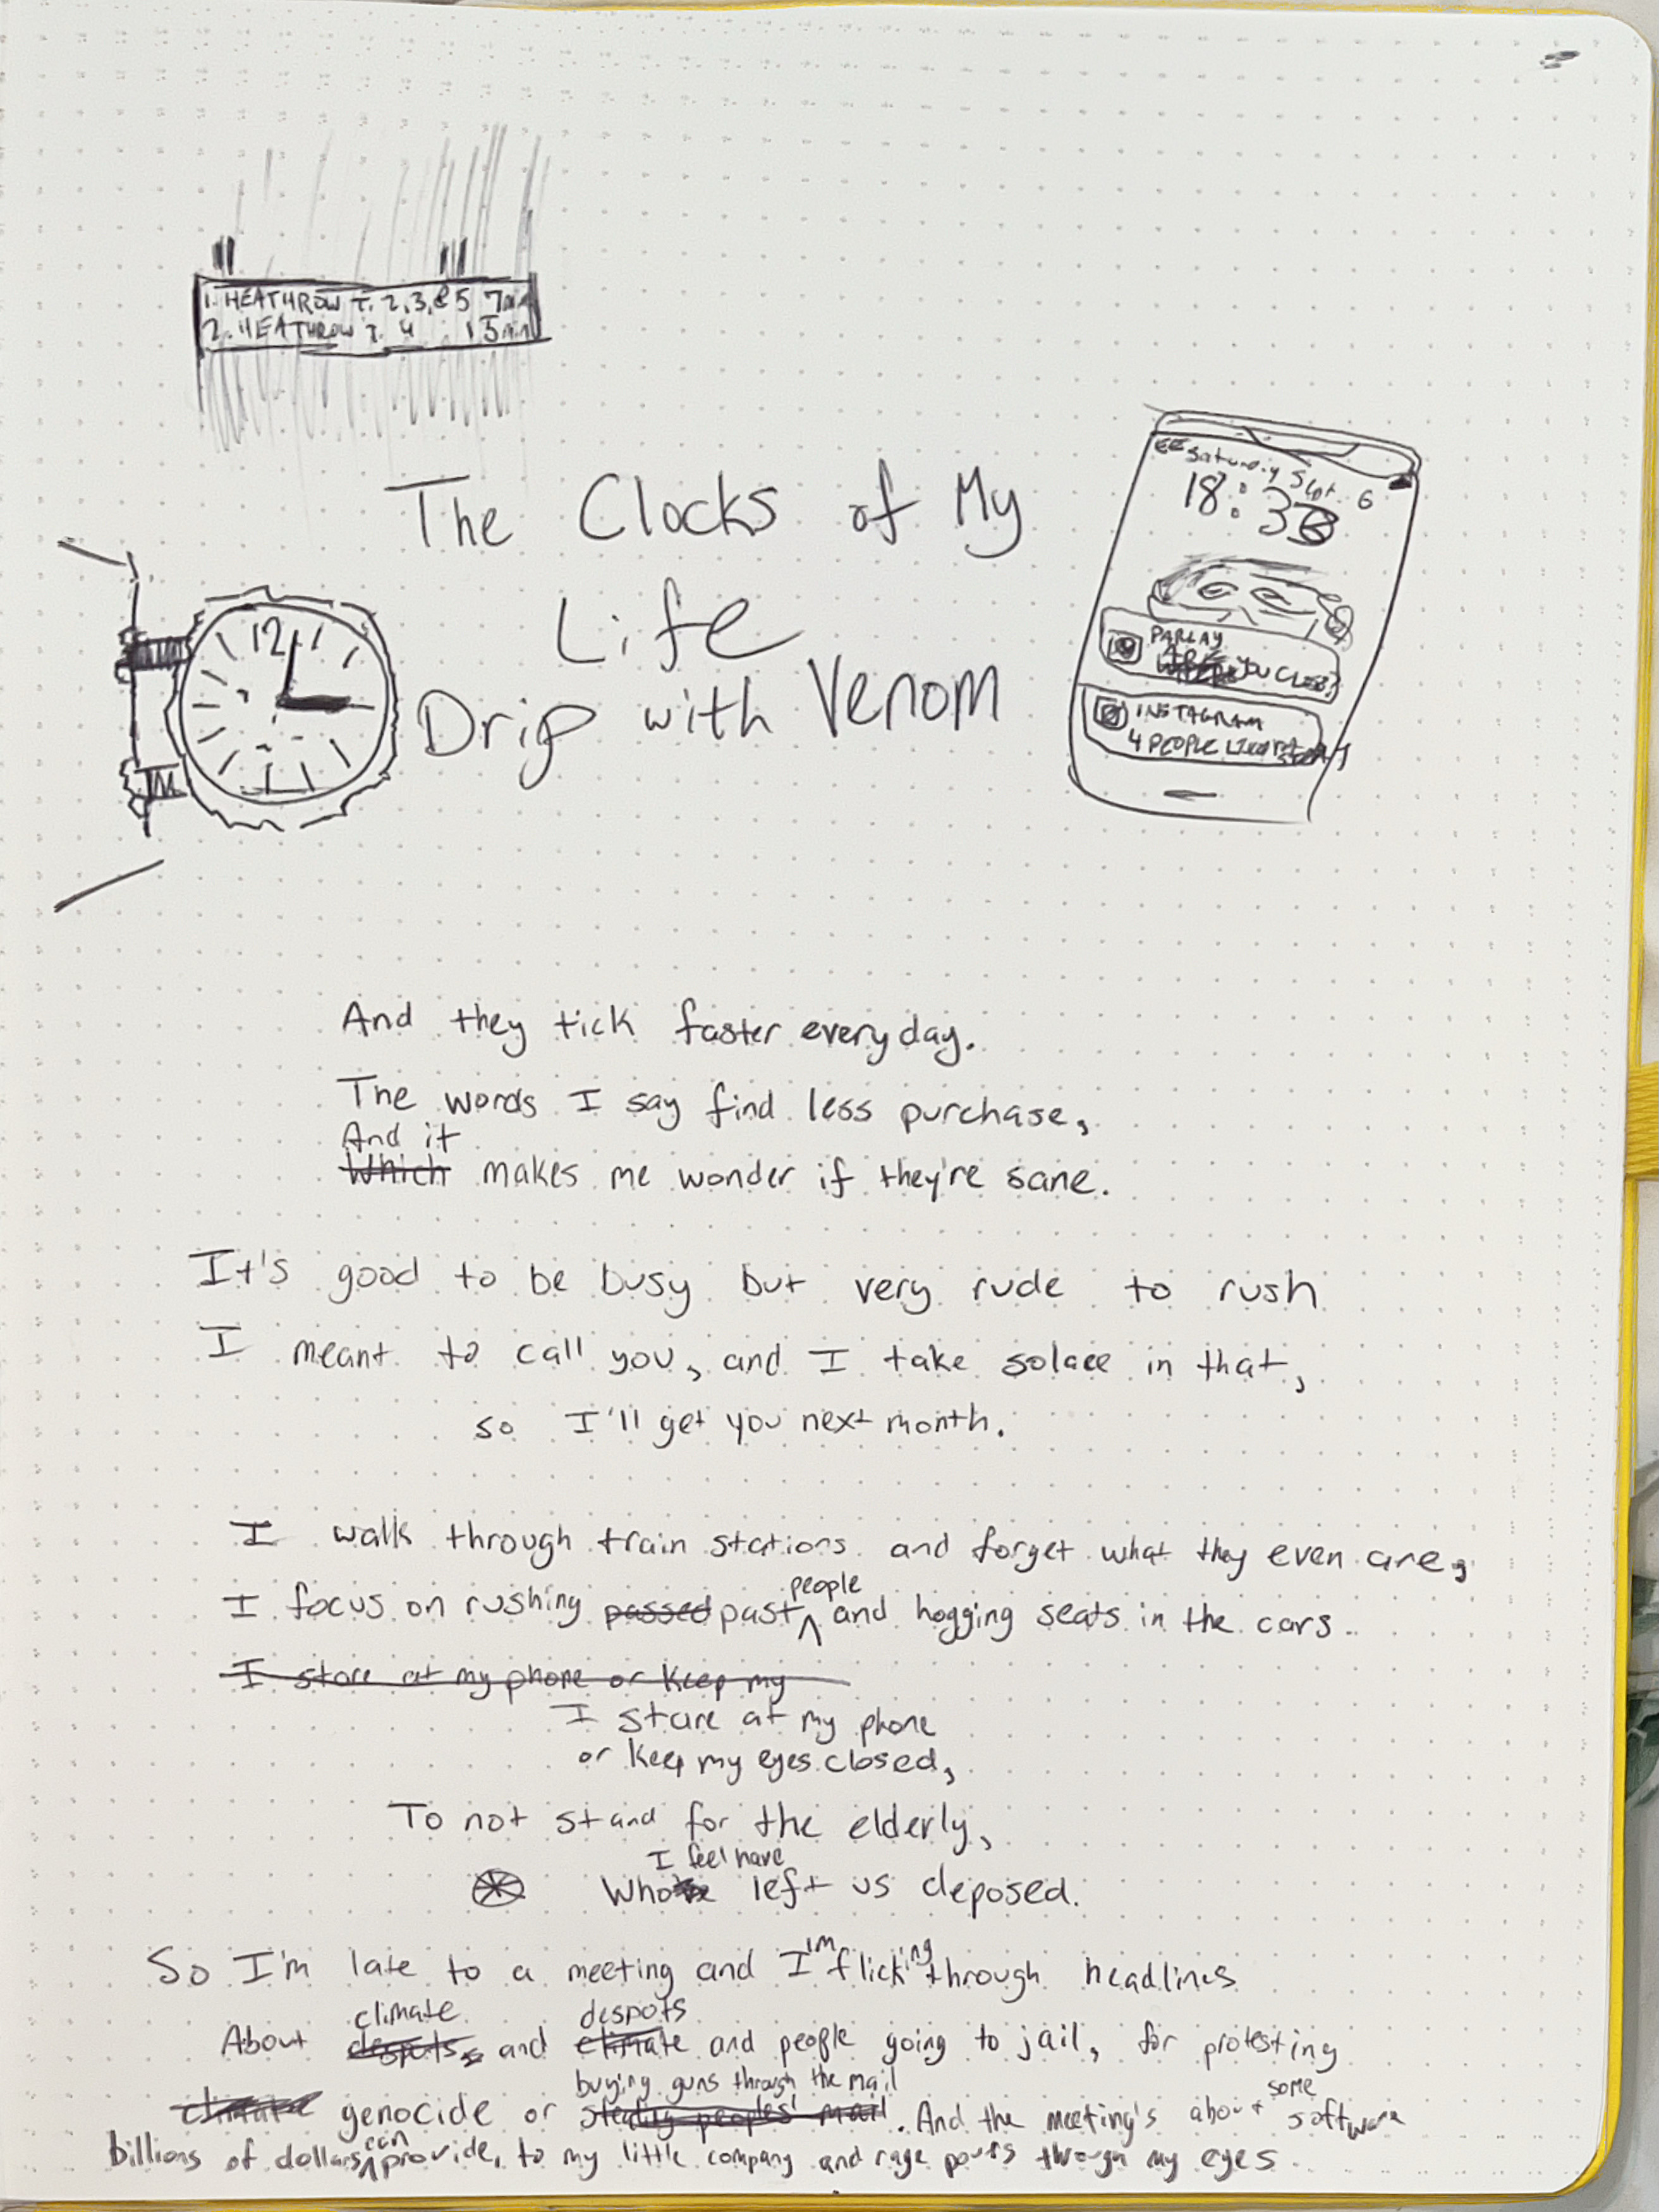 1. HEATHROW T. 2,3,& 5 7min
2. HEATHROW T. 4 15min
The Clocks of My
Life
Drip with Venom
12
EE Saturday Sept. 6
18:38
PARLAY
ARE YOU CLOSE?
INSTAGRAM
4 PEOPLE LIKED STORY
And they tick faster everyday.
The words I say find less purchase,
And it
Which makes me wonder if they're sane.
It's good to be busy but very rude to rush
I meant to call you, and I take solace in that,
so I'll get you next month.
I walk through train stations and forget what they even are,
people
I focus on rushing passed past and hogging seats in the cars.
I stare at my phone or keep my
I stare at my phone
or keep my eyes closed,
To not stand for the elderly,
I feel have
Who left us deposed.
So I'm late to a meeting and I'm flicking through headlines
climate despots
About despots, and climate and people going to jail, for protesting
buying guns through the mail some
climate genocide or stealing peoples' mail. And the meeting's about software
can
billions of dollars provide, to my little company and rage pours through my eyes.